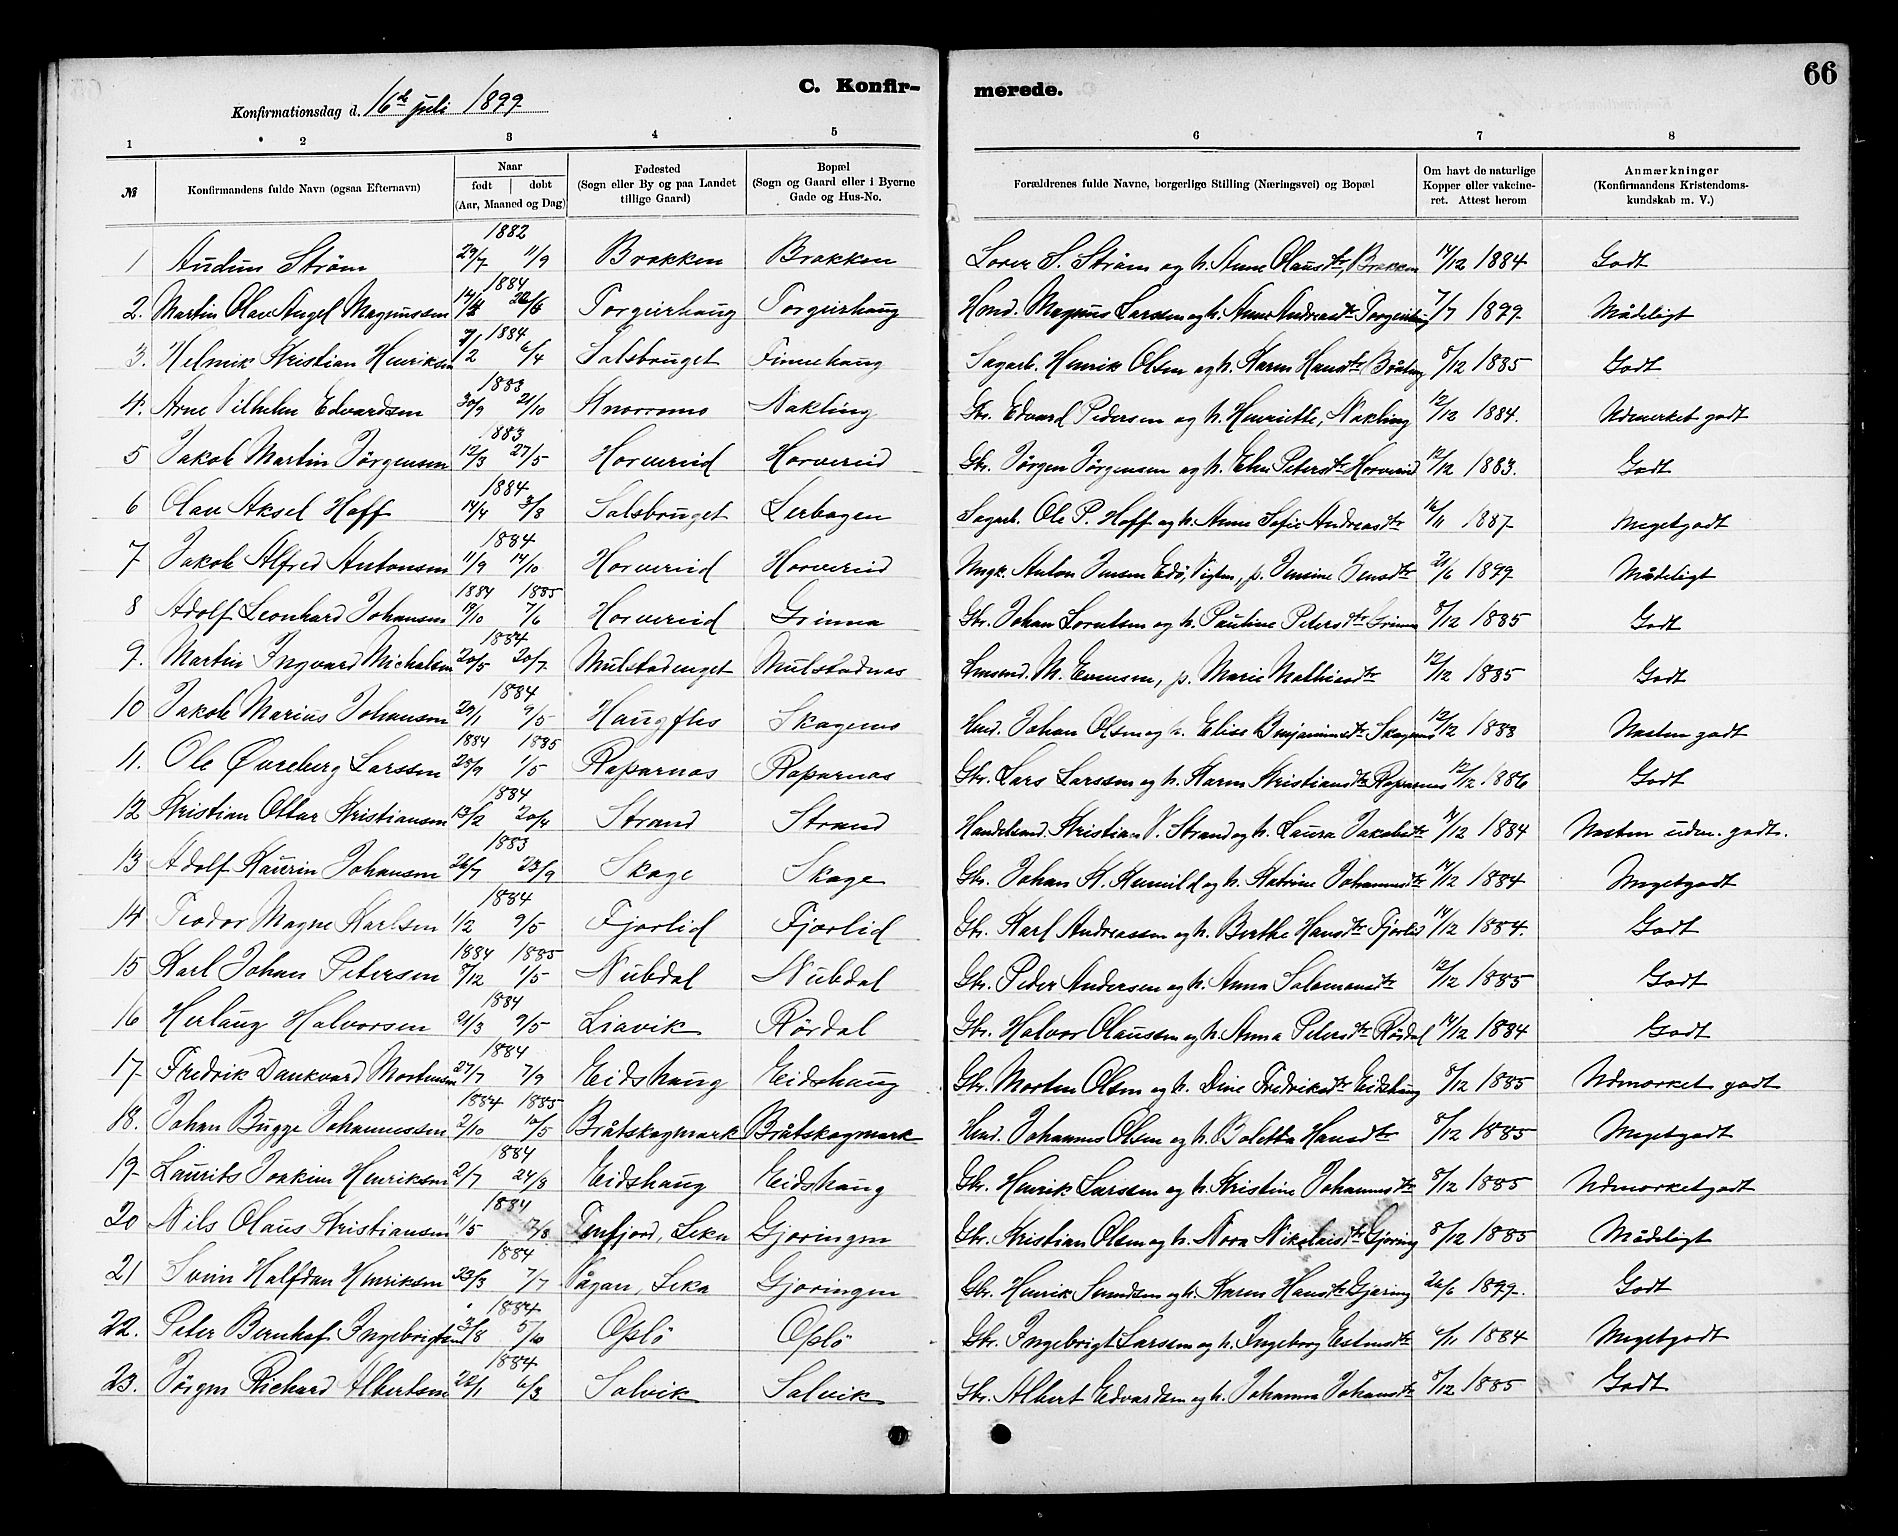 66
C. Konfir- merede.
Konfirmationsdag d. 16de juli 1899
1 2 3 4 5 6 7 8
№ Konfirmandens fulde Navn (ogsaa Efternavn) Naar født | døbt (Aar, Maaned og Dag) Fødested (Sogn eller By og paa Landet tillige Gaard) Bopæl (Sogn og Gaard eller i Byerne Gade og Hus-No. Forældrenes fulde Navne, borgerlige Stilling (Næringsvei) og Bopæl Om havt de naturlige Kopper eller vakcineret. Attest herom Anmærkninger (Konfirmandens Kristendomskundskab m. V.)
1 Audun Strøm 1882 29/7 11/9 Brakken Brakken S. Strøm og h. Anne Olausdtr, Brakken 14/12 1884 Godt
2. Martin Olav Angel Magnussen 1884 Torgeirhaug Torgeirhaug Magnus Larssen og h. Anne Andreasdtr Torgeirhaug 7/7 1899 Mådeligt
3. Helmik Kristian Henriksen 1884 6/4 Salsbruget Finnehaug Sagarb. Henrik Olsen og h. Karen Hansdtr 8/12 1885 Godt
4. Arne Vilhelm Edvardsen 1883 30/9 21/10 Nakling Gbr. Edvard Pedersen og h. Henriette, Nakling 12/12 1884. Udmerket godt
5 Jakob Martin Jørgensen 1883 12/3 27/5 Horvereid Horvereid Gbr. Jörgen Jörgensen og h. Elen Petersdtr Horvereid 12/12 1883. Godt
6 Olav Aksel Hoff 1884 14/4 3/8 Salsbruget Lerbagen Sagarb. Ole P. Hoff og h. Anne Sofie Andreasdtr 16/11 1887 Megetgodt
7 Jakob Alfred Antonsen 1884 11/9 14/10 Horvereid Horvereid Ungk. Anton Jensen Edö, Vigten, p. Jensine Jensdtr 21/6 1899 Mådeligt
8 Adolf Leonhard Johansen 1884 1885 19/10 7/6 Horvereid Grinna Gbr. Johan Lorntsen og h. Pauline Petersdtr Grinna 8/12 1885 Godt
9. Martin Ingvard Michalsen 1884 20/5 20/7 Mulstadenget Mulstadnæs M. Evensen, p. Marie Mathiasdtr 12/12 1885 Godt
10 Jakob Marius Johansen 1884 29/1 9/5 Haugfles Skagenes Hmd. Johan Olsen og h. Elise Benjaminsdtr Skagenes 12/12 1883 Næsten godt
11. Ole Øvreberg Larssen 1884 1885 25/9 1/5 Raparnæs Raparnæs Gbr. Lars Larssen og h. Karen Kristiansdtr Raparnæs 12/12 1886 Godt
12 Kristian Ottar Kristiansen 1884 13/2 20/4 Strand Strand Handelsmd. Kristian V. Strand og h. Laura Jakobsdtr 14/12 1884 Næsten udm. godt.
13 Adolf Kaurin Johansen 1883 26/7 23/9 Skage Skage Gbr. Johan K. og h. Katrine Johannesdtr 14/12 1884 Megetgodt
14 Teodor Magne Karlsen 1884 1/2 9/5 Fjørlid Fjørlid Gbr. Karl Andreassen og h. Berthe Hansdtr Fjørlid 14/12 1884. Godt
15 Karl Johan Petersen 1884 1885 8/12 1/5 Nubdal Nubdal Gbr. Peder Andersen og h. Anna Salamonsdtr 12/12 1885 Godt
16 Herlaug Halvorsen 1884 21/3 9/5 Liavik Rördal Gbr. Halvor Olaussen og h. Anna Petersdtr Rördal 14/12 1884 Godt
17 Fredrik Dankvard Mortensen 1884 27/7 7/9 Eidshaug Eidshaug Gbr. Morten Olsen og h. Dine Fredriksdtr Eidshaug 8/12 1885 Udmærket godt
18. Johan Bugge Johannessen 1884 1885 2/10 10/5 Bråtskagmark Bråtskagmark Hmd. Johannes Olsen og h. Boletta Hansdtr 8/12 1885 Megetgodt
19 Laurits Joakim Henriksen 1884 2/7 24/8 Eidshaug Eidshaug Gbr. Henrik Larssen og h. Kristine Johannesdtr 8/12 1885 Udmærketgodt
20 Nils Olaus Kristiansen 1884 11/5 17/8 Tenfjord, Leka Gjæringen Gbr. Kristian Olsen og h. Nora Nikolaisdtr Gjæring 8/12 1885 Mådeligt
21 Svein Halfdan Henriksen 1884 23/3 7/7 Vågan, Leka Gjæringen Gbr. Henrik og h. Karen Hansdtr Gjæring 26/6 1899. Godt
22. Peter Bernhof Ingebrigtsen 1884 3/8 5/10 Oplö Oplö Gbr. Ingebrigt Larssen og h. Ingeborg 6/11 1884 Megetgodt
23. Jörgen Richard Albertsen 1884 22/1 6/3 Salvik Salvik Gbr. Albert Edvardsen og h. Johanna Johansdtr 8/12 1885 Godt